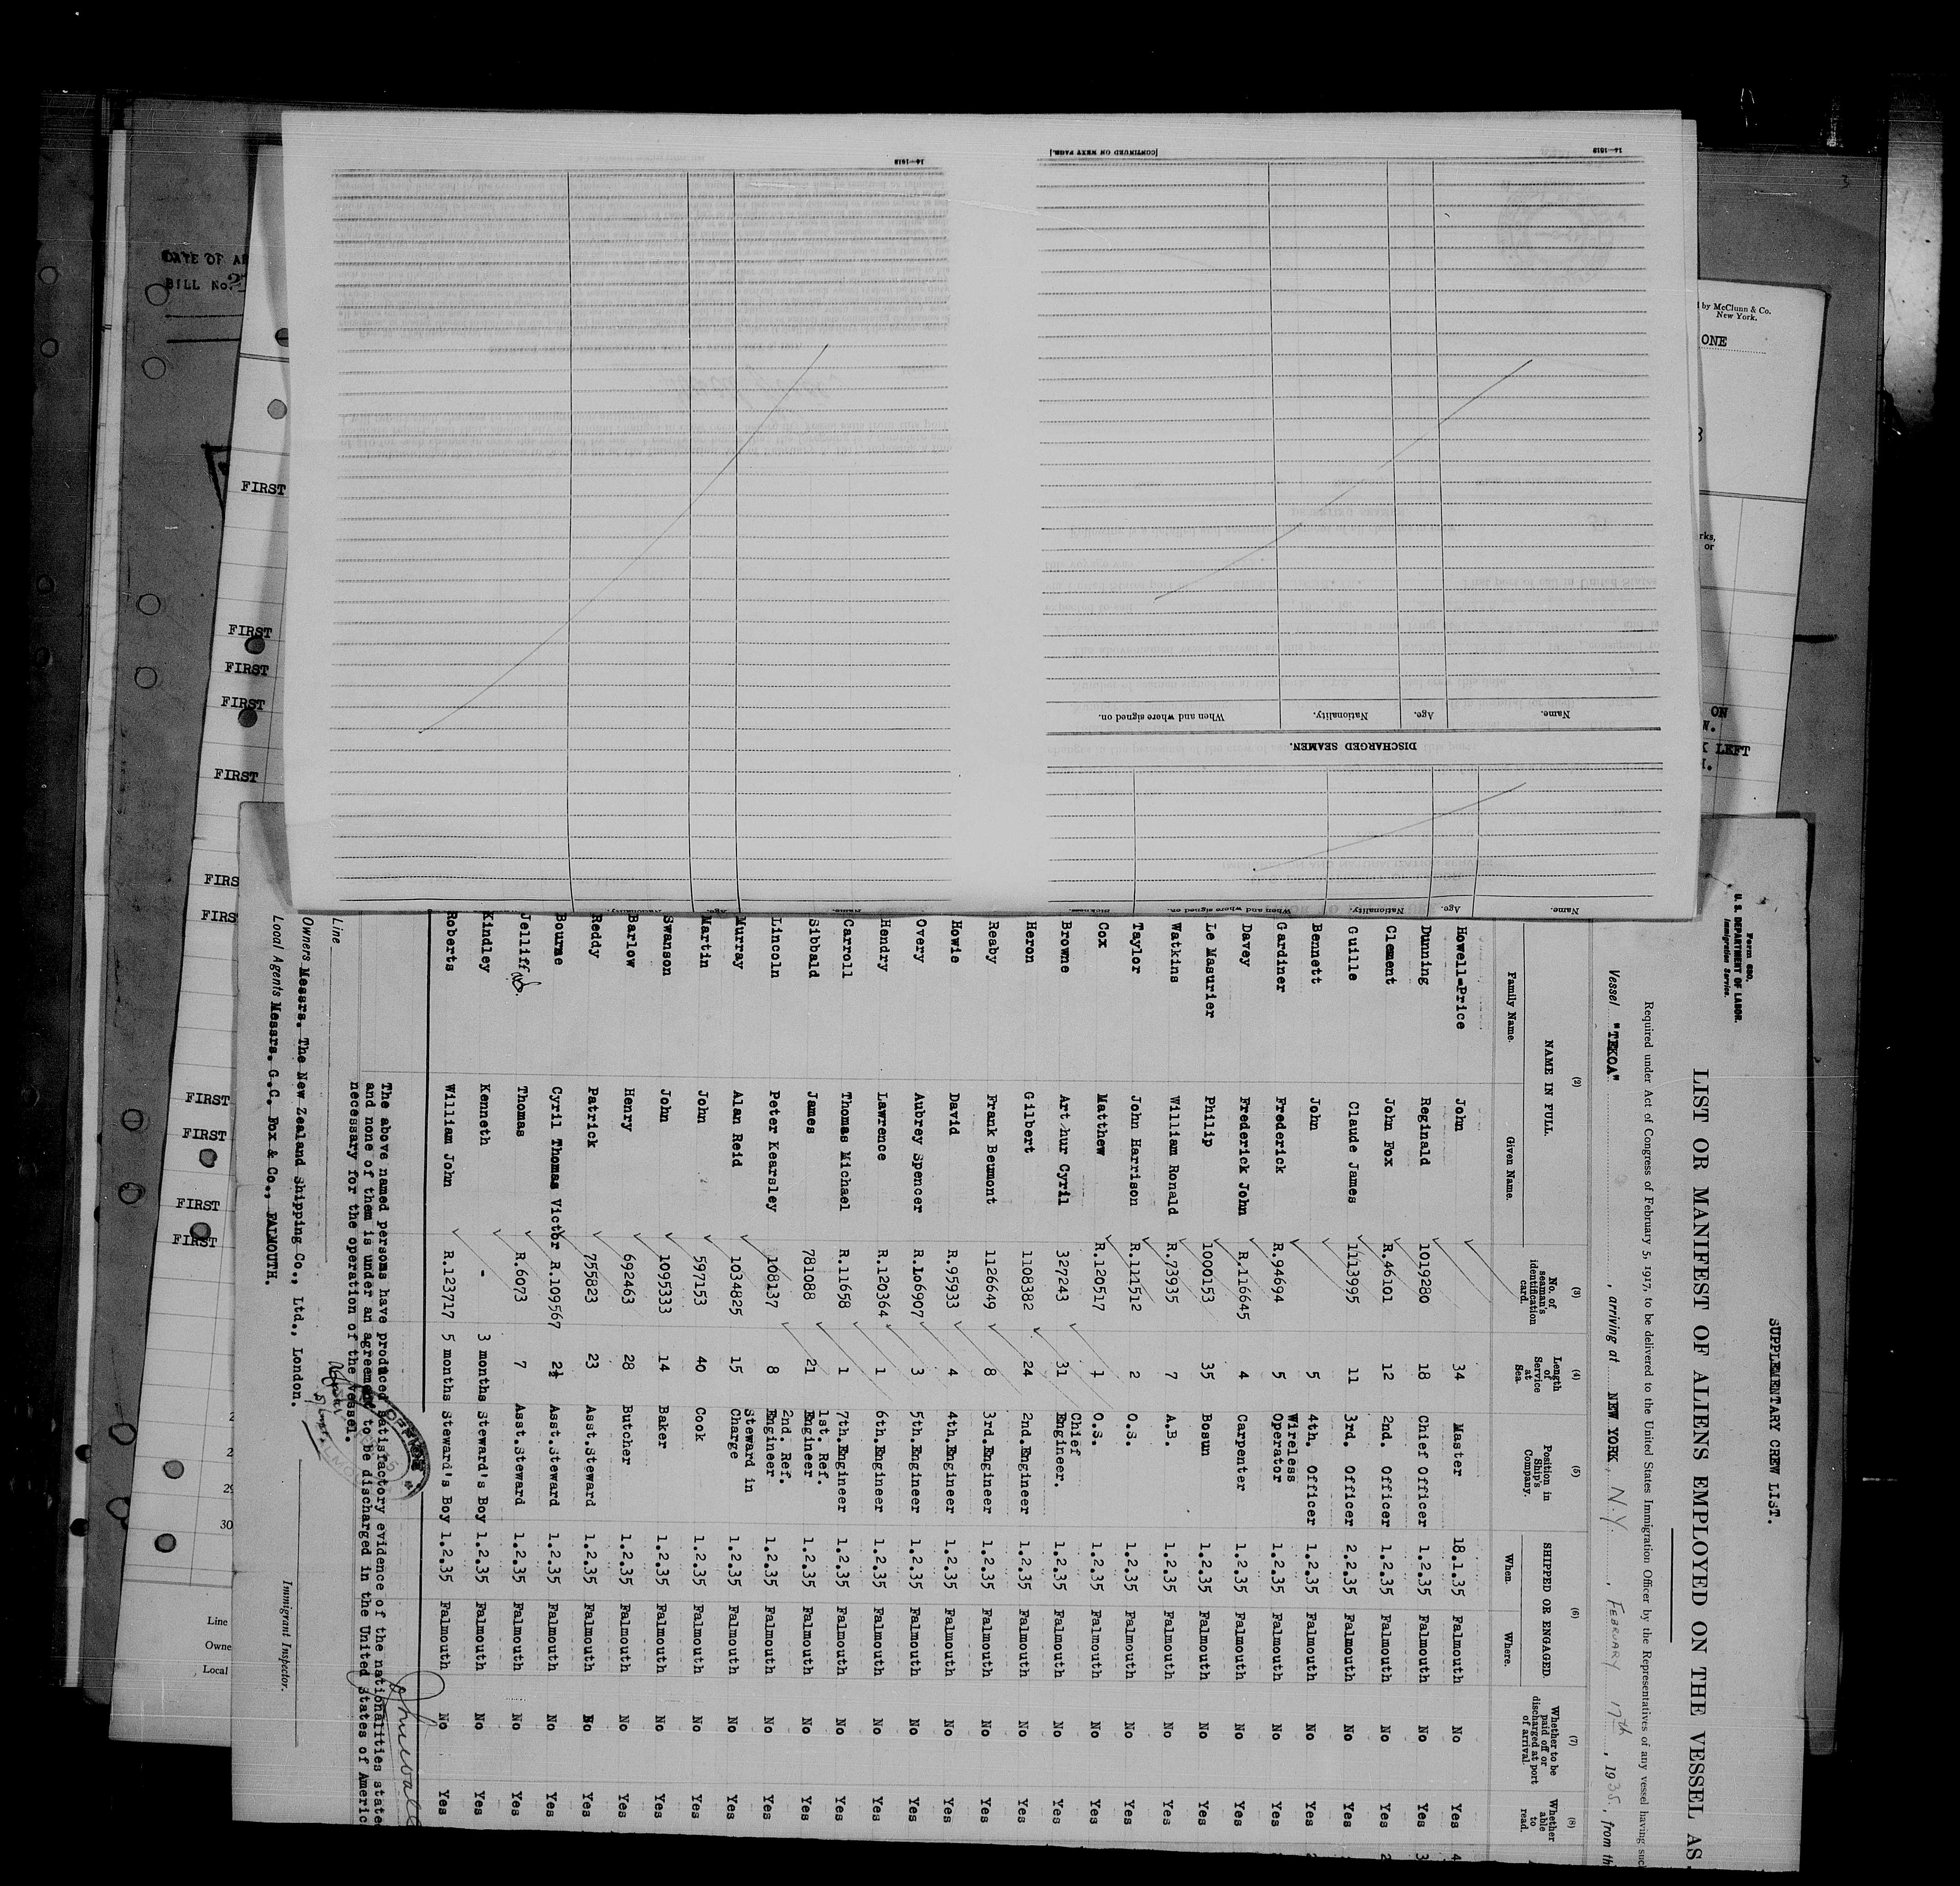 SUPPLEMENTARY CREW LIST.
Form 680.
U. S. DEPARTMENT OF LABOR.
Immigration Service.
LIST OR MANIFEST OF ALIENS EMPLOYED ON THE VESSEL AS
Required under Act of Congress of February 5, 1917, to be delivered to the United States Immigration Officer by the Representatives of any vessel having such
Vessel "TEKOA" , arriving at NEW YORK, N.Y. , FEBRUARY 17th , 1935, from th
(2) (3) (4) (5) (6) (7) (8)
NAME IN FULL. No. of seaman's identification card. Length of Service at Sea. Position in Ship's Company. SHIPPED OR ENGAGED Whether to be paid off or discharged at port of arrival. Whether able to read.
Family Name. Given Name. When. Where.
Howell-Price John 34 Master 18.1.35 Falmouth No Yes 4
Dunning Reginald 1019280 18 Chief Officer 1.2.35 Falmouth No Yes 3
Clement John Fox R.46101 12 2nd. Officer 1.2.35 Falmouth No Yes 2
Guille Claude James 1113995 11 3rd. Officer 2.2.35 Falmouth No Yes
Bennett John 5 4th. Officer 1.2.35 Falmouth No Yes 2
Gardiner Frederick R.94694 5 Wireless Operator 1.2.35 Falmouth No Yes
Davey Frederick John R.116645 4 Carpenter 1.2.35 Falmouth No Yes
Le Masurier Philip 1000153 35 Bosun 1.2.35 Falmouth No Yes
Watkins William Ronald R.73935 7 A.B. 1.2.35 Falmouth No Yes
Taylor John Harrison R.111512 2 O.S. 1.2.35 Falmouth No Yes
Cox Matthew R.120517 1 O.S. 1.2.35 Falmouth No Yes
Browne Arthur Cyril 327243 31 Chief Engineer. 1.2.35 Falmouth No Yes
Heron Gilbert 1108382 24 2nd.Engineer 1.2.35 Falmouth No Yes
Reaby Frank Beumont 1126649 8 3rd.Engineer 1.2.35 Falmouth No Yes
Howie David R.95933 4 4th.Engineer 1.2.35 Falmouth No Yes
Overy Aubrey Spencer R.106907 3 5th.Engineer 1.2.35 Falmouth No Yes
Hendry Lawrence R.120364 1 6th.Engineer 1.2.35 Falmouth No Yes
Carroll Thomas Michael R.11658 1 7th.Engineer 1.2.35 Falmouth No Yes
Sibbald James 781088 21 1st. Ref. Engineer 1.2.35 Falmouth No Yes
Lincoln Peter Kearsley 108137 8 2nd. Ref. Engineer 1.2.35 Falmouth No Yes
Murray Alan Reid 1034825 15 Steward in Charge 1.2.35 Falmouth No Yes
Martin John 597153 40 Cook 1.2.35 Falmouth No Yes
Swanson John 1095333 14 Baker 1.2.35 Falmouth No Yes
Barlow Henry 692463 28 Butcher 1.2.35 Falmouth No Yes
Reddy Patrick 755823 23 Asst.Steward 1.2.35 Falmouth No Yes
Bourne Cyril Thomas Victor R.109567 2½ Asst.Steward 1.2.35 Falmouth No Yes
Jelliff Thomas R.6073 7 Asst.Steward 1.2.35 Falmouth No Yes
Kindley Kenneth - 3 months Steward's Boy 1.2.35 Falmouth No Yes
Roberts William John R.123717 5 months Steward's Boy 1.2.35 Falmouth No Yes
The above named persons have produced satisfactory evidence of the nationalities state
and none of them is under an agreement to be discharged in the United States of Americ
necessary for the operation of the vessel.
Line
Owners Messrs. The New Zealand Shipping Co., Ltd., London.
Local Agents Messrs. G.C. Fox & Co., FALMOUTH.
Immigrant Inspector.
Name. Age. Nationality. When and where signed on. Sickness.
DISCHARGED SEAMEN.
Name. Age. Nationality. When and where signed on.
[CONTINUED ON NEXT PAGE.]
14—1613
14—1613
Name. Age. Nationality.
DATE OF AR
BILL No. 2
FIRST
FIRST
FIRST
FIRST
FIRST
FIRS
FIRS
FIRST
FIRST
FIRST
FIRST
2
2
29
30
Line
Owne
Local
d by McClunn & Co.
New York.
ONE
3
rks,
or
ON
W.
K LEFT